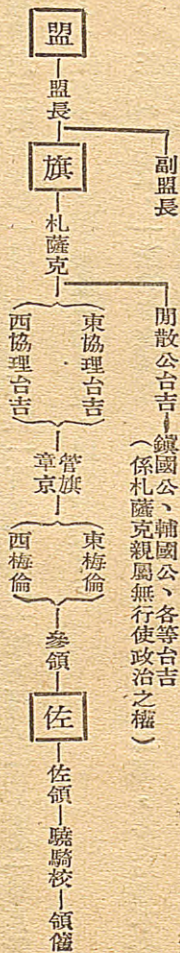 盟
盟長
副盟長
旗
札薩克
閒散公台吉
鎭國公、輔國公、各等台吉
(係札薩克親屬無行使政治之權)
東協理台吉
西協理台吉
管旗
章京
東梅倫
西梅倫
參領
佐
佐領
驍騎校
領催